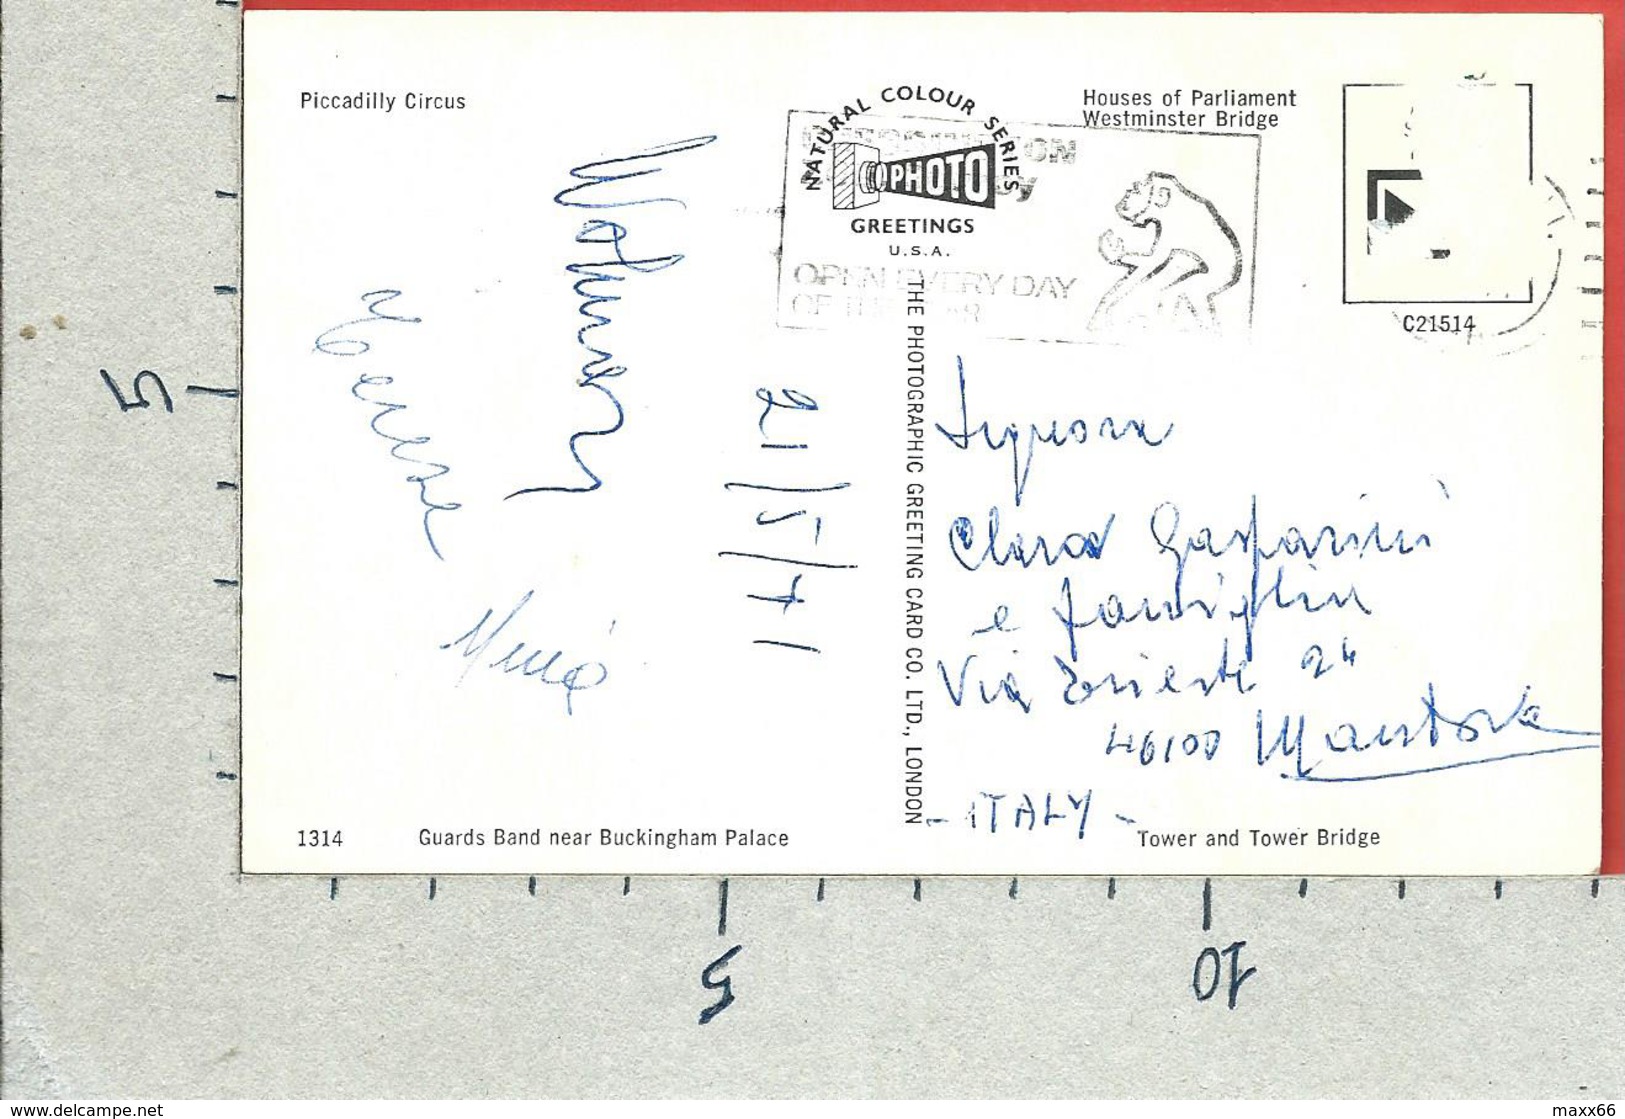 Piccadilly Circus
NATURAL COLOUR SERIES
PHOTO
GREETINGS
U.S.A.
Houses of Parliament
Westminster Bridge
OPEN EVERY DAY
OF THE
C21514
21/5/71
THE PHOTOGRAPHIC GREETING CARD CO. LTD., LONDON
Signora
Clara Gasparini
e famiglia
Via Trieste 24
46100 Mantova
- ITALY -
1314
Guards Band near Buckingham Palace
Tower and Tower Bridge
5
5
10
www.delcampe.net
maxx66